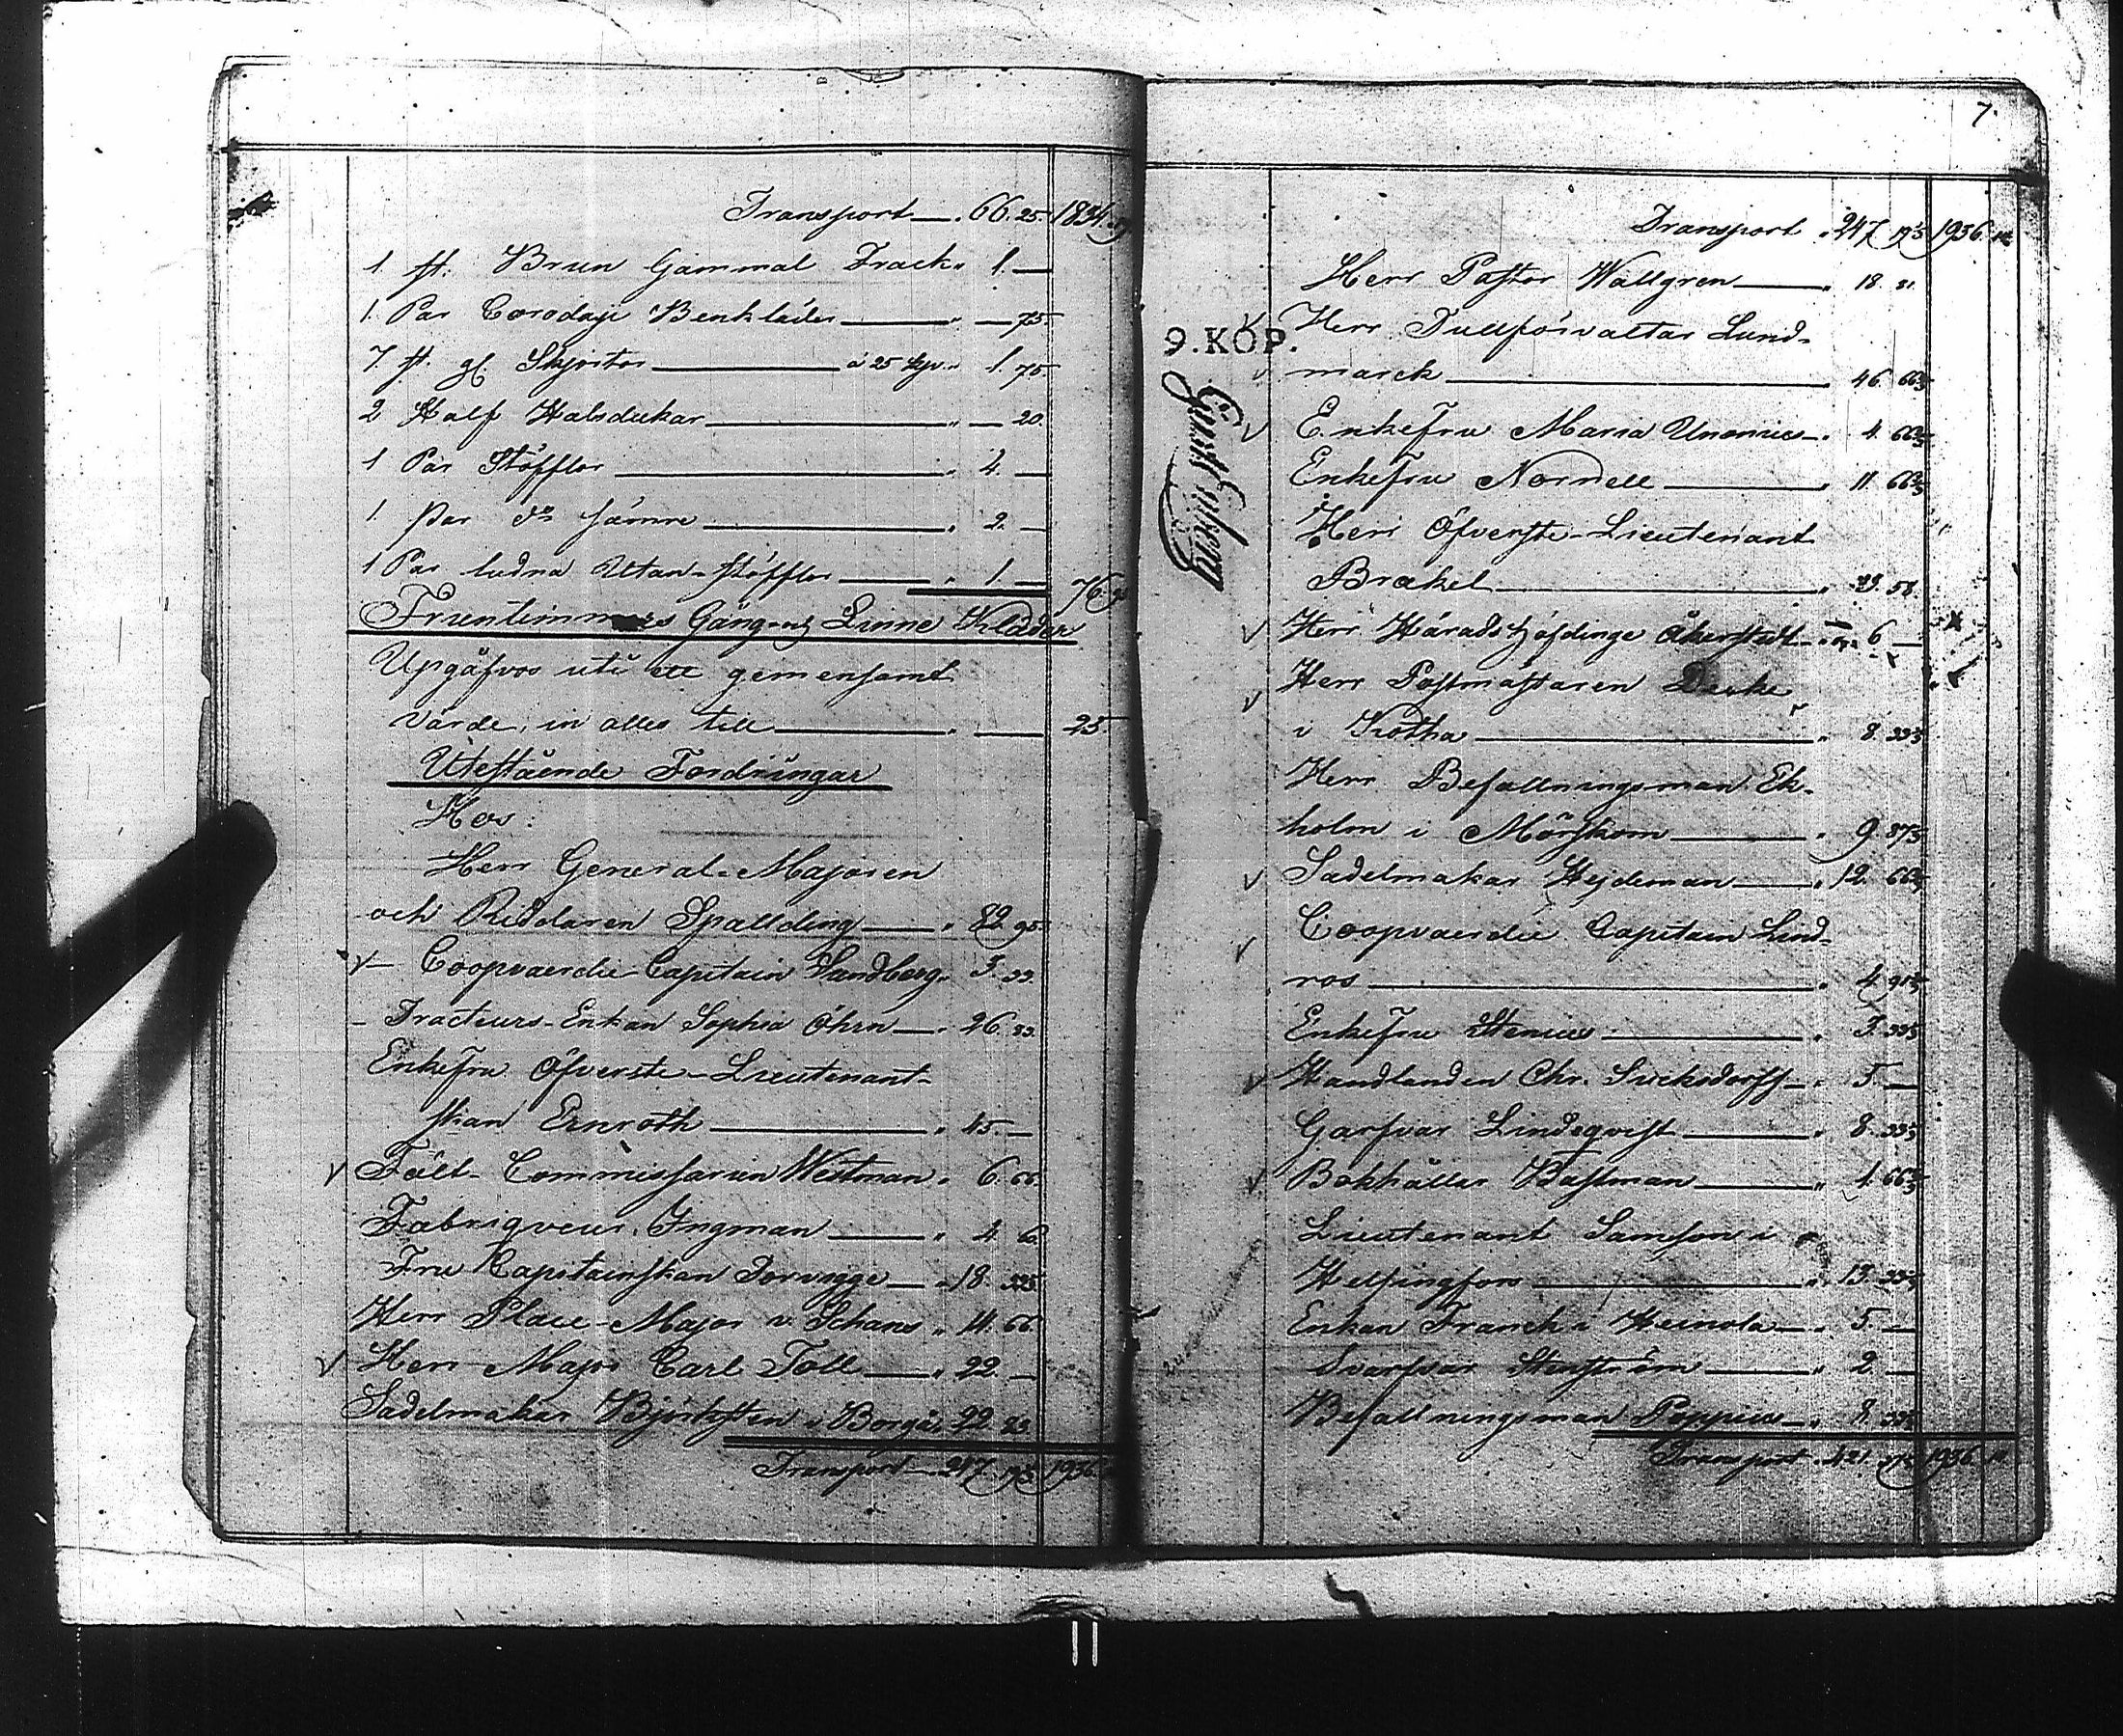 Transport — . 66. 25 1834.
1. st. Brun Gammal Frack „ 1. —
1. Par Corodaji Benkläder — „ — 75.
7. st. gl Skjortor — á 25 kop. „ 1. 75.
2 Half Halsdukar — „ — 20.
1 Par Stöfflor — „ 4. —
1. par do sämre — „ 2. —
1 Par ludna Utan-stöfflor — „ 1. — 76.
Fruentimmers Gång- och Linne Kläder
Upgåfvos uti ett gemensamt
värde, in alles till — „ — 25.
Utestående Fordringar
Hos:
Herr General-Majoren
och Riddaren Spallding — „ 82. 95.
Coopvaerdie Capitain Sandberg „ 3. 33.
Tracteurs-Enkan Sophia Öhrn — „ 26. 33.
Enkefru Öfverste-Lieutenant-
skan Ernroth — „ 45. —
Fält-Commissarien Westman „ 6. 66.
Fabriqveur Ingman — „ 4. 6
Fru Capitainskan — „ 18. 33⅓
Herr Place-Major v. Schans „ 11. 66.
Herr Major Carl Toll — „ 22. —
Sadelmakar Björksten i Borgå „ 22. 23.
Transport — 247. 19⅓ 1936.
7.
Transport „ 247. 19⅓ 1936.
Herr Pastor Wallgren — „ 18. 21.
9. KOP.
Herr Tullförvaltar Lund-
marck — „ 46. 66⅔
Enkefru Maria Unonius — „ 4. 66⅔
Enkefru Nordell — „ 11. 66⅔
Herr Öfverste-Lieutenant
Brakel — „ 23. 58.
Herr Härads Höfdinge Åkerstedt — „ 6 —
Herr Postmästaren
i Kotka — „ 8. 33⅓
Herr Befallningsman Ek-
holm i Mörskom — „ 9. 87⅓
Sadelmakar Hejdeman — „ 12. 66⅔
Coopvaerdie Capitain Lind-
ros — „ 4. 91⅔
Enkefru Stenius — „ 3. 33⅓
Handlanden Chr. Sucksdorff — „ 5 —
Garfvar Lindeqvist — „ 8. 33⅓
Bokhållar Bastman — „ 1. 66⅔
Lieutenant Samson i
Helsingfors — „ 13. 33⅓
Enkan Franck i Heinola — „ 5. —
Svarfvar Stenström — „ 2. —
Befallningsman Poppius — „ 8. 33⅓
Transport . 421. 1936.